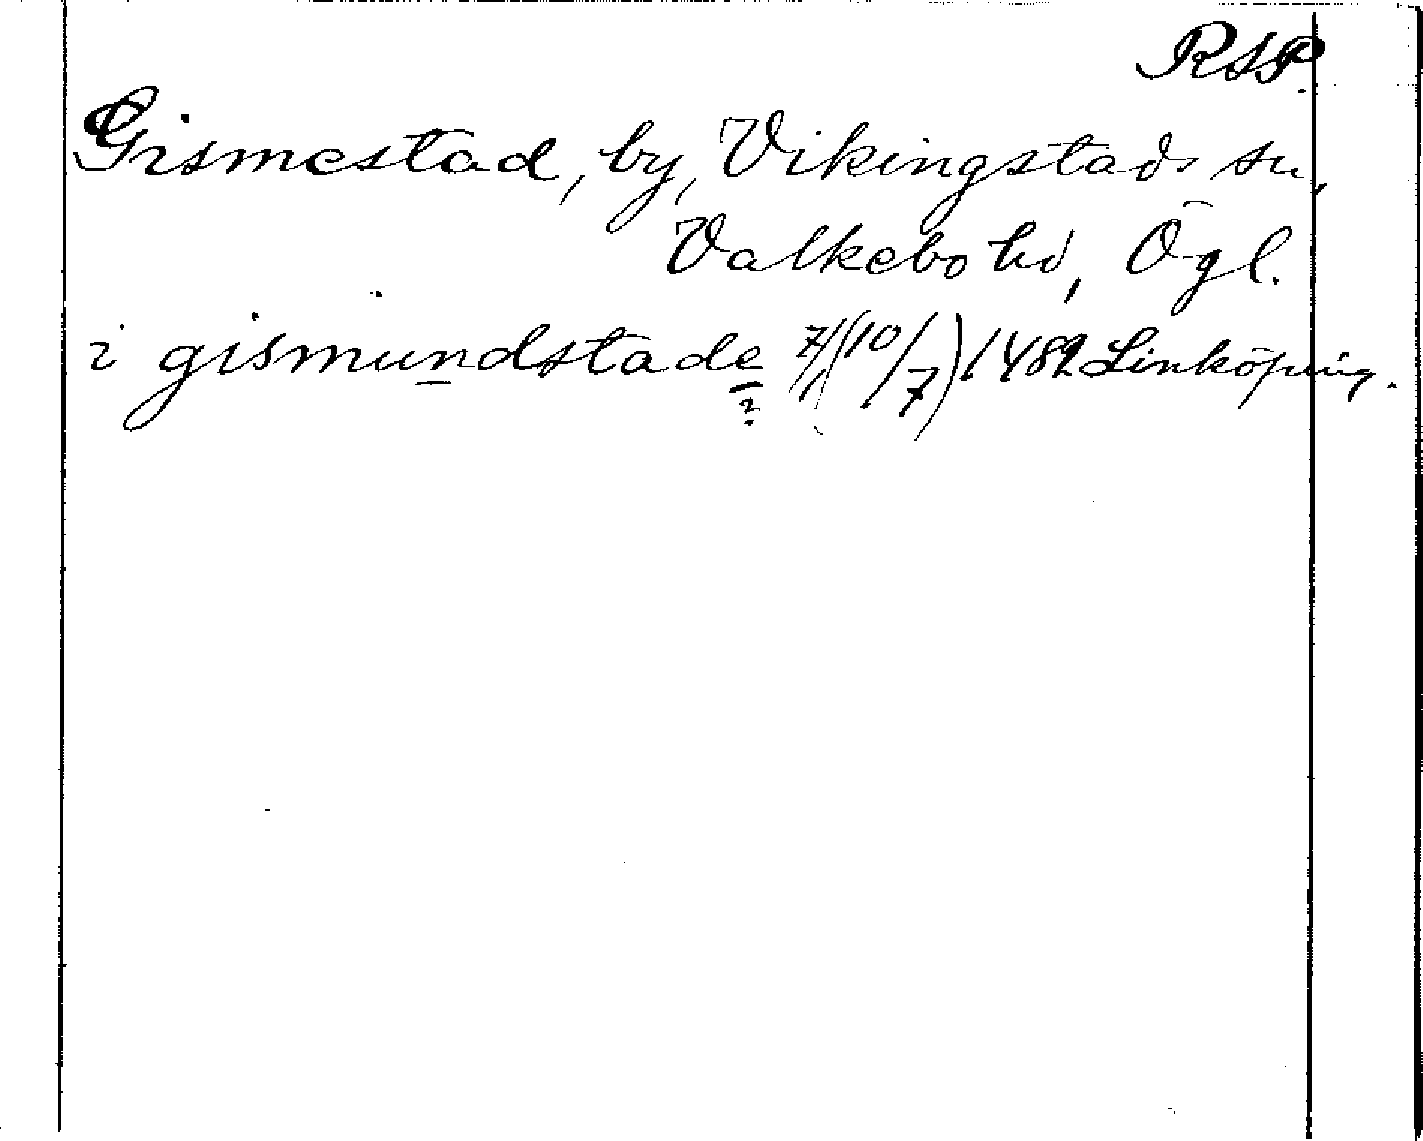 RAP.
Gismestad, by, Vikingstads sn,
Valkebo hd, Ögl.
i gismundstade 7/1 (10/7) 1482 Linköping.
?